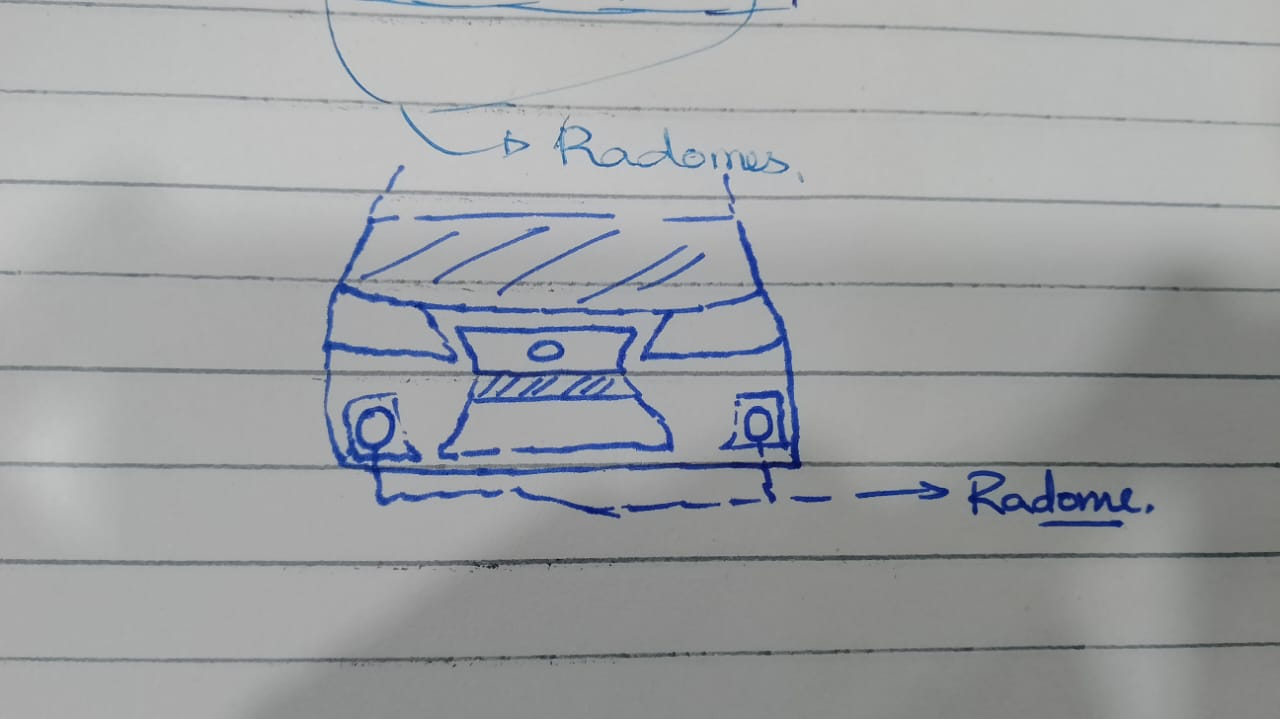 Radomes.
Radome.